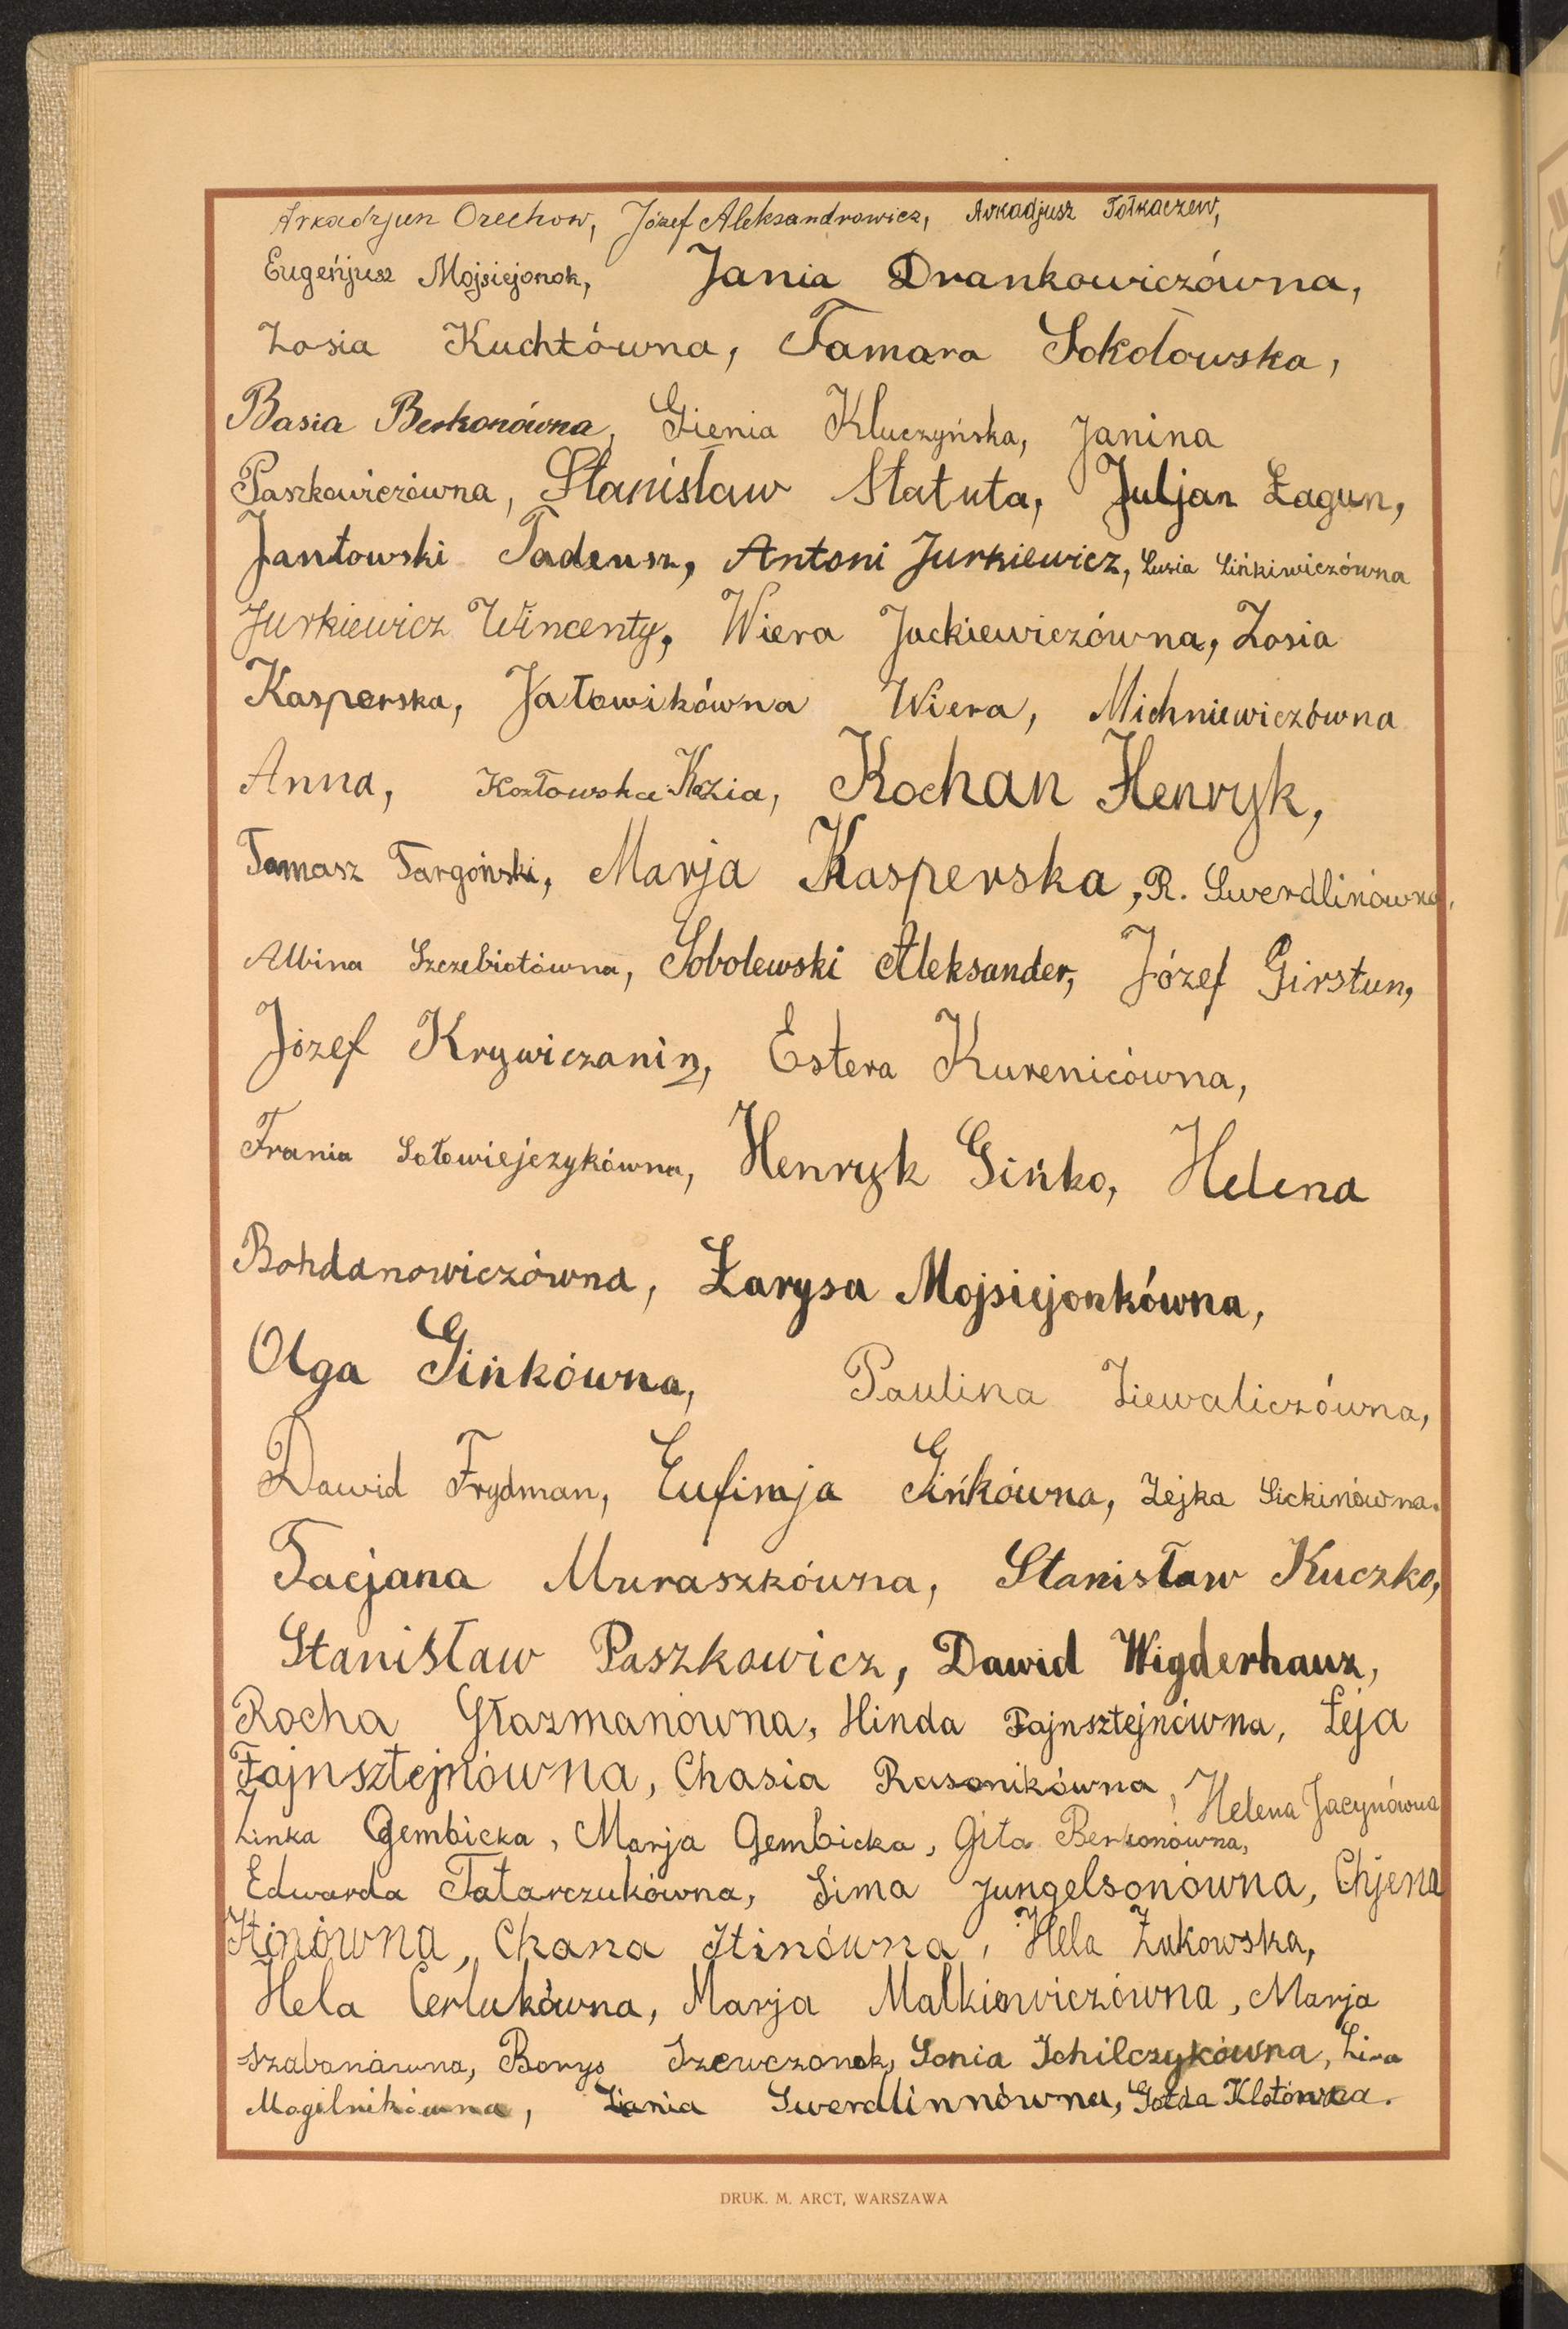 Arkadzjun Orechow, Józef Aleksandrowicz, Arkadjusz Tołkaczew,
Eugenjusz Mojsiejonok, Jania Drankowiczówna,
Zosia Kuchtówna, Tamara Sokołowska,
Basia Berkonówna, Gienia Kluczyńska, Janina
Paszkowiczówna, Stanisław Statuta, Juljan Łagun,
Jantowski Tadeusz, Antoni Jurkiewicz, Lusia Lińkiwiczówna
Jurkiewicz Wincenty, Wiera Jackiewiczówna, Zosia
Kasperska, Jałowikówna Wiera, Michniewiczówna
Anna, Kozłowska Kazia, Kochan Henryk,
Tomasz Targoński, Marja Kasperska, R. Swerdlinówna,
Albina Szczebiotówna, Sobolewski Aleksander, Józef Girstun,
Józef Krywiczanin, Estera Kurenicówna,
Frania Sołowiejczykówna, Henryk Gińko, Helena
Bohdanowiczówna, Łarysa Mojsiejonkówna,
Olga Gińkówna, Paulina Ziewaliczówna,
Dawid Frydman, Eufimja Gińkówna, Zejka Sickinówna.
Tacjana Muraszkówna, Stanisław Kuczko,
Stanisław Paszkowicz, Dawid Wigderhauz,
Rocha Głazmanówna, Hinda Fajnsztejnówna, Łeja
Fajnsztejnówna, Chasia Rasonikówna, Helena Jacynówna
Zinka Gembicka, Marja Gembicka, Gita Berkonówna,
Edwarda Tatarczukówna, Sima Jungelsonówna, Chjena
Itinówna, Chana Itinówna, Hela Żukowska,
Hela Cerlukówna, Marja Malkiewiczówna, Marja
Szabanówna, Borys Szewczonok, Sonia Ichilczykówna, Lira
Mogilnikówna, Zania Swerdlinnówna, Gołda Klotówna.
DRUK. M. ARCT, WARSZAWA